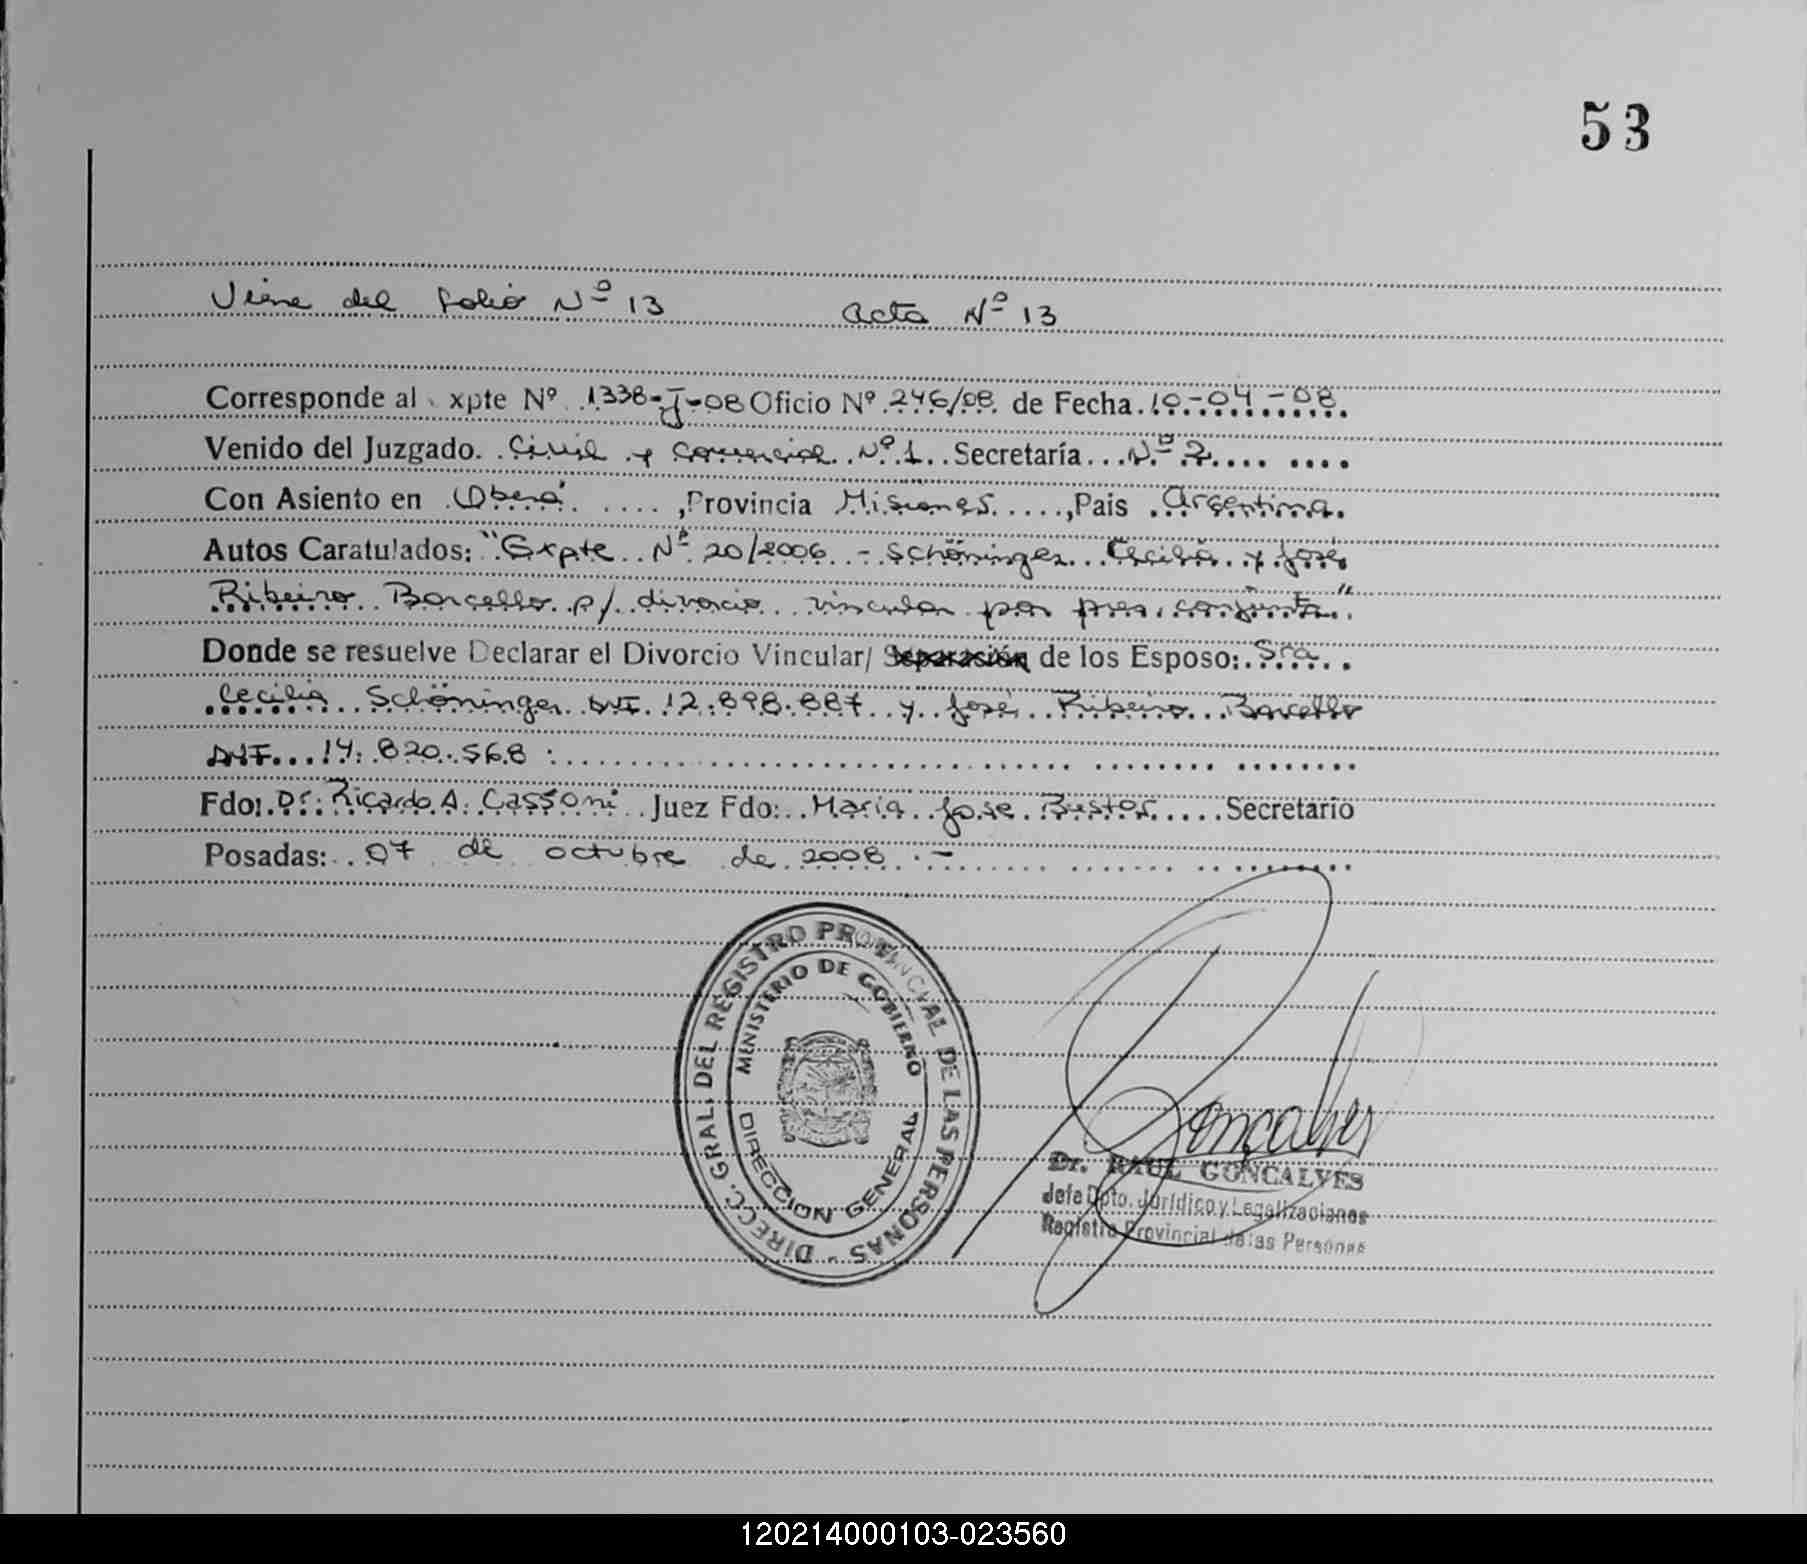 53
Viene del folio Nº 13 acta Nº 13
Corresponde al xpte Nº 1338-J-08 Oficio Nº 246/08 de Fecha 10-04-08
Venido del Juzgado. Civil y Comercial Nº 1 Secretaría Nº 2
Con Asiento en Oberá, Provincia Misiones, Pais Argentina.
Autos Caratulados: "Expte Nº 20/2006 - Schöninger Cecilia y José
Ribeiro Barcello p/ divorcio vincular por pres. conjunta"
Donde se resuelve Declarar el Divorcio Vincular/ Separación de los Esposo: Sra
Cecilia Schöninger DNI 12.898.887 y José Ribeiro Barcello
DNI 14.820.568
Fdo: Dr. Ricardo A. Cassoni Juez Fdo: Maria Jose Bustos Secretario
Posadas: 07 de octubre de 2008.-
DIRECC. GRAL. DEL REGISTRO PROVINCIAL DE LAS PERSONAS -
MINISTERIO DE GOBIERNO
DIRECCION GENERAL
Goncalves
Dr. RAUL GONCALVES
Jefe Dpto. Jurídico y Legalizaciones
Registro Provincial de las Personas
120214000103-023560